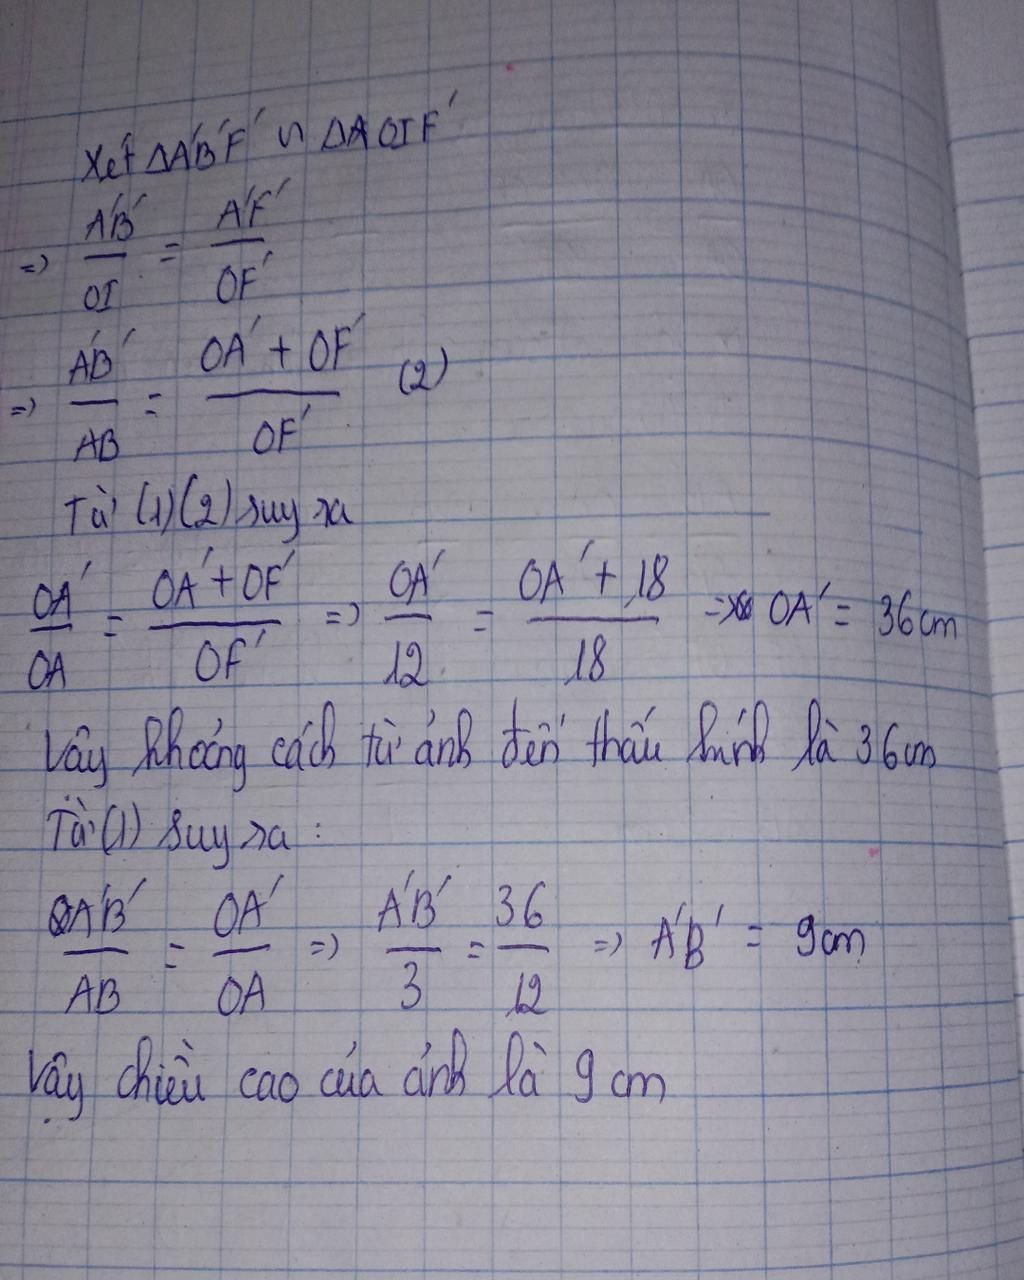 Xét ΔA'B'F' ∽ ΔAOIF'
=> A'B'/OI = A'F'/OF'
=> A'B'/AB = (OA' + OF')/OF' (2)
Từ (1)(2) suy ra
OA'/OA = (OA' + OF')/OF' => OA'/12 = (OA' + 18)/18 => OA' = 36cm
Vậy khoảng cách từ ảnh đến thấu kính là 36cm
Từ (1) suy ra :
A'B'/AB = OA'/OA => A'B'/3 = 36/12 => A'B' = 9cm
Vậy chiều cao của ảnh là 9cm